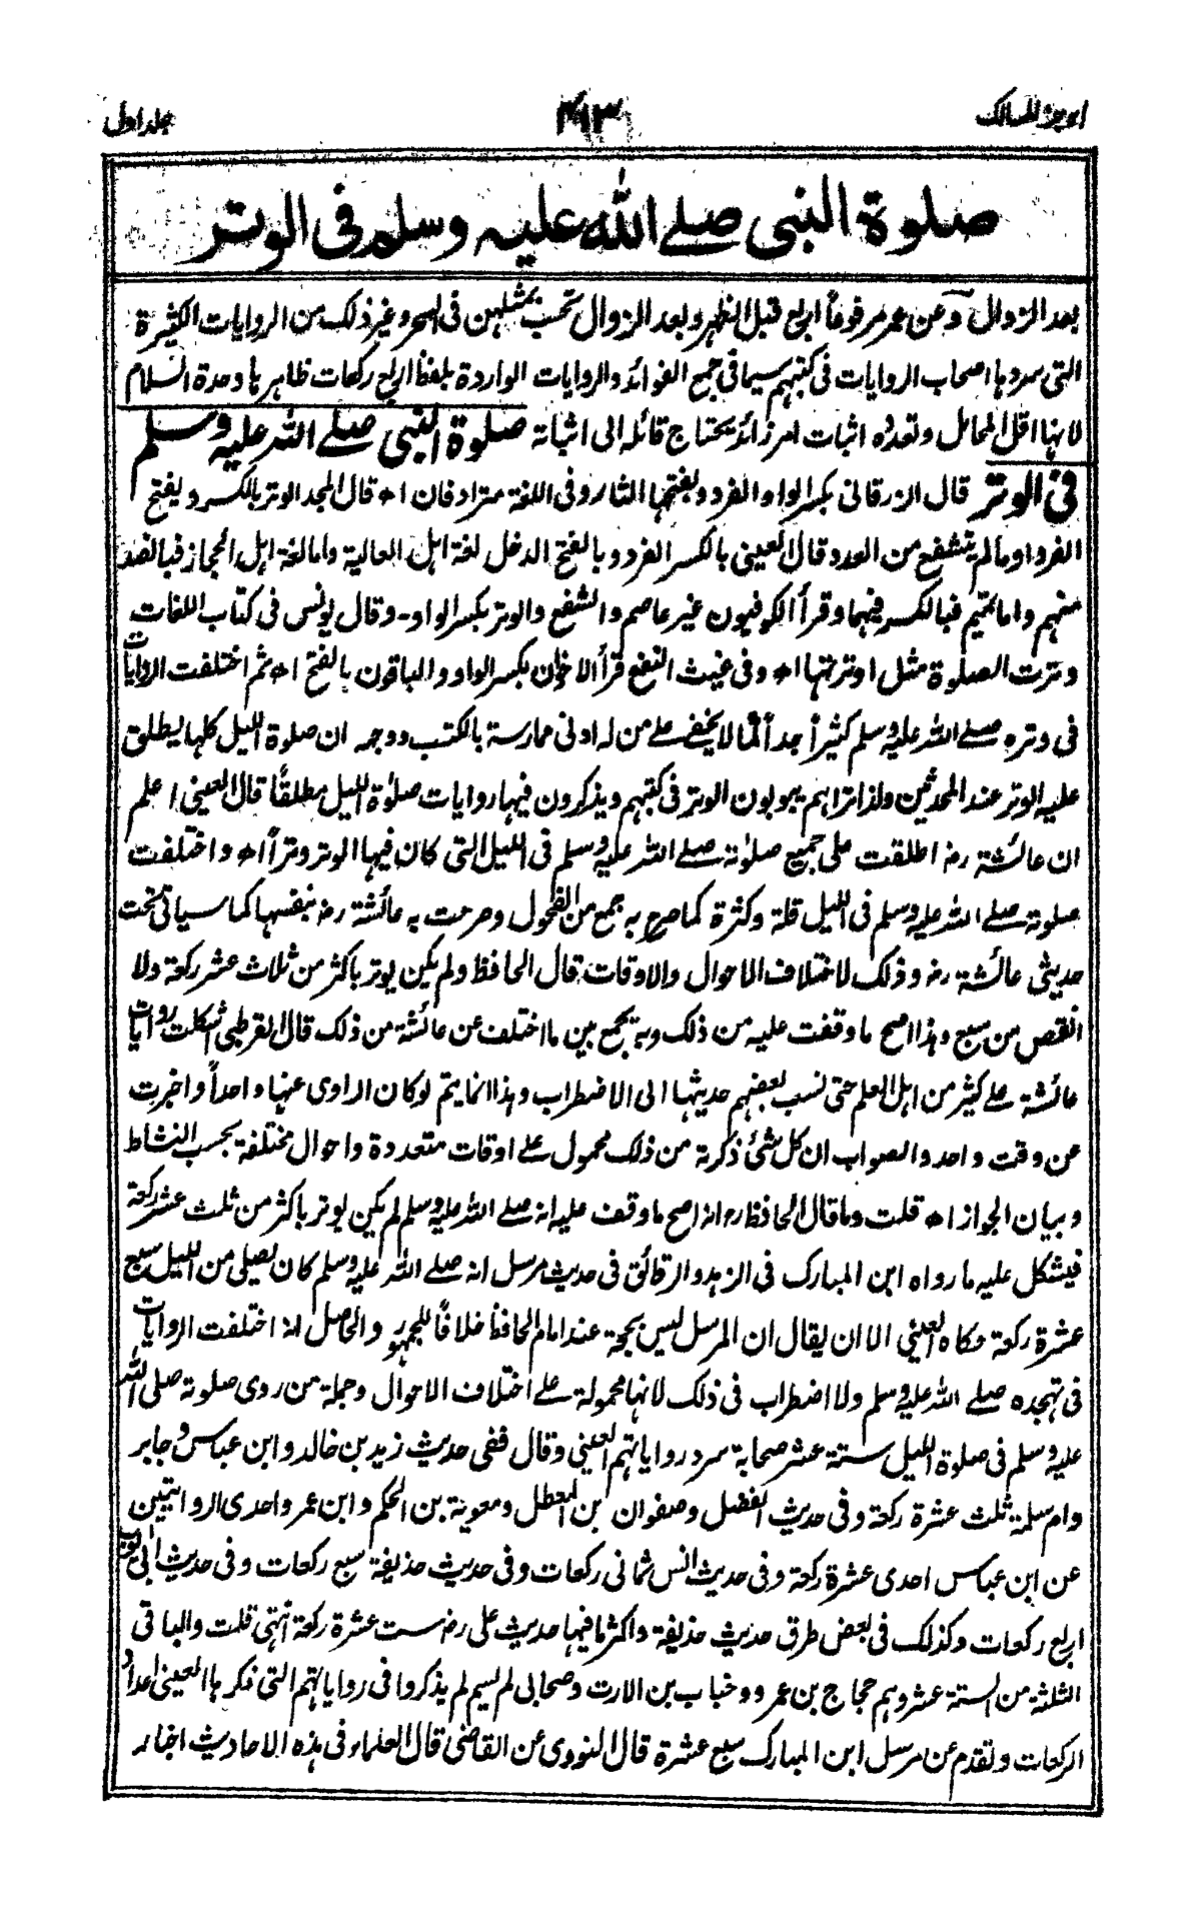 اوجز المسالك ۴۱۳ جلد اول
صلوة النبى صلے الله عليہ وسلم فى الوتر
بعد الزوال وعن عمر مرفوعاً اربع قبل الظهر وبعد الزوال تحسب بمثلهن فى السحر وغير ذلك من الروايات الكثيرة
التى سردها اصحاب الروايات فى كتبهم سيما فى جمع الفوائد والروايات الواردة بلفظ اربع ركعات ظاهر بأ وحدة السلام
لانها اقل المحامل وتعدده اثبات امر زائد يحتاج قائله الى اثباته صلوة النبى صلے الله عليہ وسلم
فى الوتر قال الزرقانى بكسر الواو الفرد وبفتحها الثار وفى اللغة مترادفان اھ قال المجد الوتر بالكسر ويفتح
الفرد او مالم يتشفع من العدد قال العينى بالكسر الفرد وبالفتح الدخل لغة اهل العالية واما لغة اهل الحجاز فبالضد
منهم واما تميم فبالكسر فيهما وقرأ الكوفيون غير عاصم والشفع والوتر بكسر الواو - وقال يونس فى كتاب اللغات
وترت الصلوة مثل اوترتها اھ وفى غيث النفع قرأ الاخوان بكسر الواو والباقون بالفتح اھ ثم اختلفت الروايات
فى وتره صلے الله عليہ وسلم كثيراً جداً لما لا يخفى على من له ادنى ممارسة بالكتب ووجهه ان صلوة الليل كلها يطلق
عليه الوتر عند المحدثين ولذا تراهم يبوبون الوتر فى كتبهم ويذكرون فيها روايات صلوة الليل مطلقاً قال العينى اعلم
ان عائشة رض اطلقت على جميع صلوته صلے الله عليہ وسلم فى الليل التى كان فيها الوتر وتراً اھ واختلفت
صلوته صلے الله عليہ وسلم فى الليل قلة وكثرة كما صرح به جمع من الفحول وصرحت به عائشة رض بنفسها كما سياتى تحت
حديثى عائشة رض وذلك لاختلاف الاحوال والاوقات قال الحافظ ولم يكن يوتر باكثر من ثلاث عشر ركعة ولا
انقص من سبع وهذا اصح ما وقفت عليه من ذلك وبه يجمع بين ما اختلف عن عائشة من ذلك قال القرطبى اشكلت روايات
عائشة على كثير من اهل العلم حتى نسب بعضهم حديثها الى الاضطراب وهذا انما يتم لو كان الراوى عنها واحداً واخبرت
عن وقت واحد والصواب ان كل شئ ذكرته من ذلك محمول على اوقات متعددة واحوال مختلفة بحسب النشاط
وبيان الجواز اھ قلت وما قال الحافظ رح انه اصح ما وقف عليه انه صلے الله عليہ وسلم لم يكن يوتر باكثر من ثلث عشر ركعة
فيشكل عليه ما رواه ابن المبارك فى الزهد والرقائق فى حديث مرسل انه صلے الله عليہ وسلم كان يصلى من الليل سبع
عشرة ركعة حكاه العينى الا ان يقال ان المرسل ليس بحجة عند امام الحافظ خلافاً للجمهور والحاصل انه اختلفت الروايات
فى تهجده صلے الله عليہ وسلم ولا اضطراب فى ذلك لانها محمولة على اختلاف الاحوال وجملة من روى صلوته صلى الله
عليہ وسلم فى صلوة الليل ستة عشر صحابة سرد رواياتهم العينى وقال ففى حديث زيد بن خالد وابن عباس وجابر
وام سلمة ثلث عشرة ركعة وفى حديث الفضل وصفوان بن المعطل ومعوية بن الحكم وابن عمر واحدى الروايتين
عن ابن عباس احدى عشرة ركعة وفى حديث انس ثمانى ركعات وفى حديث حذيفة سبع ركعات وفى حديث ابى ايوب
اربع ركعات وكذلك فى بعض طرق حديث حذيفة واكثر ما فيها حديث على رض ست عشرة ركعة انتهى قلت والباقى
الثلثة من الستة عشر وهم حجاج بن عمرو وخباب بن الارت وصحابى لم يسم لم يذكروا فى رواياتهم التى ذكرها العينى اعداد
الركعات وتقدم عن مرسل ابن المبارك سبع عشرة قال النووى عن القاضى قال العلماء فى هذه الاحاديث اخبار